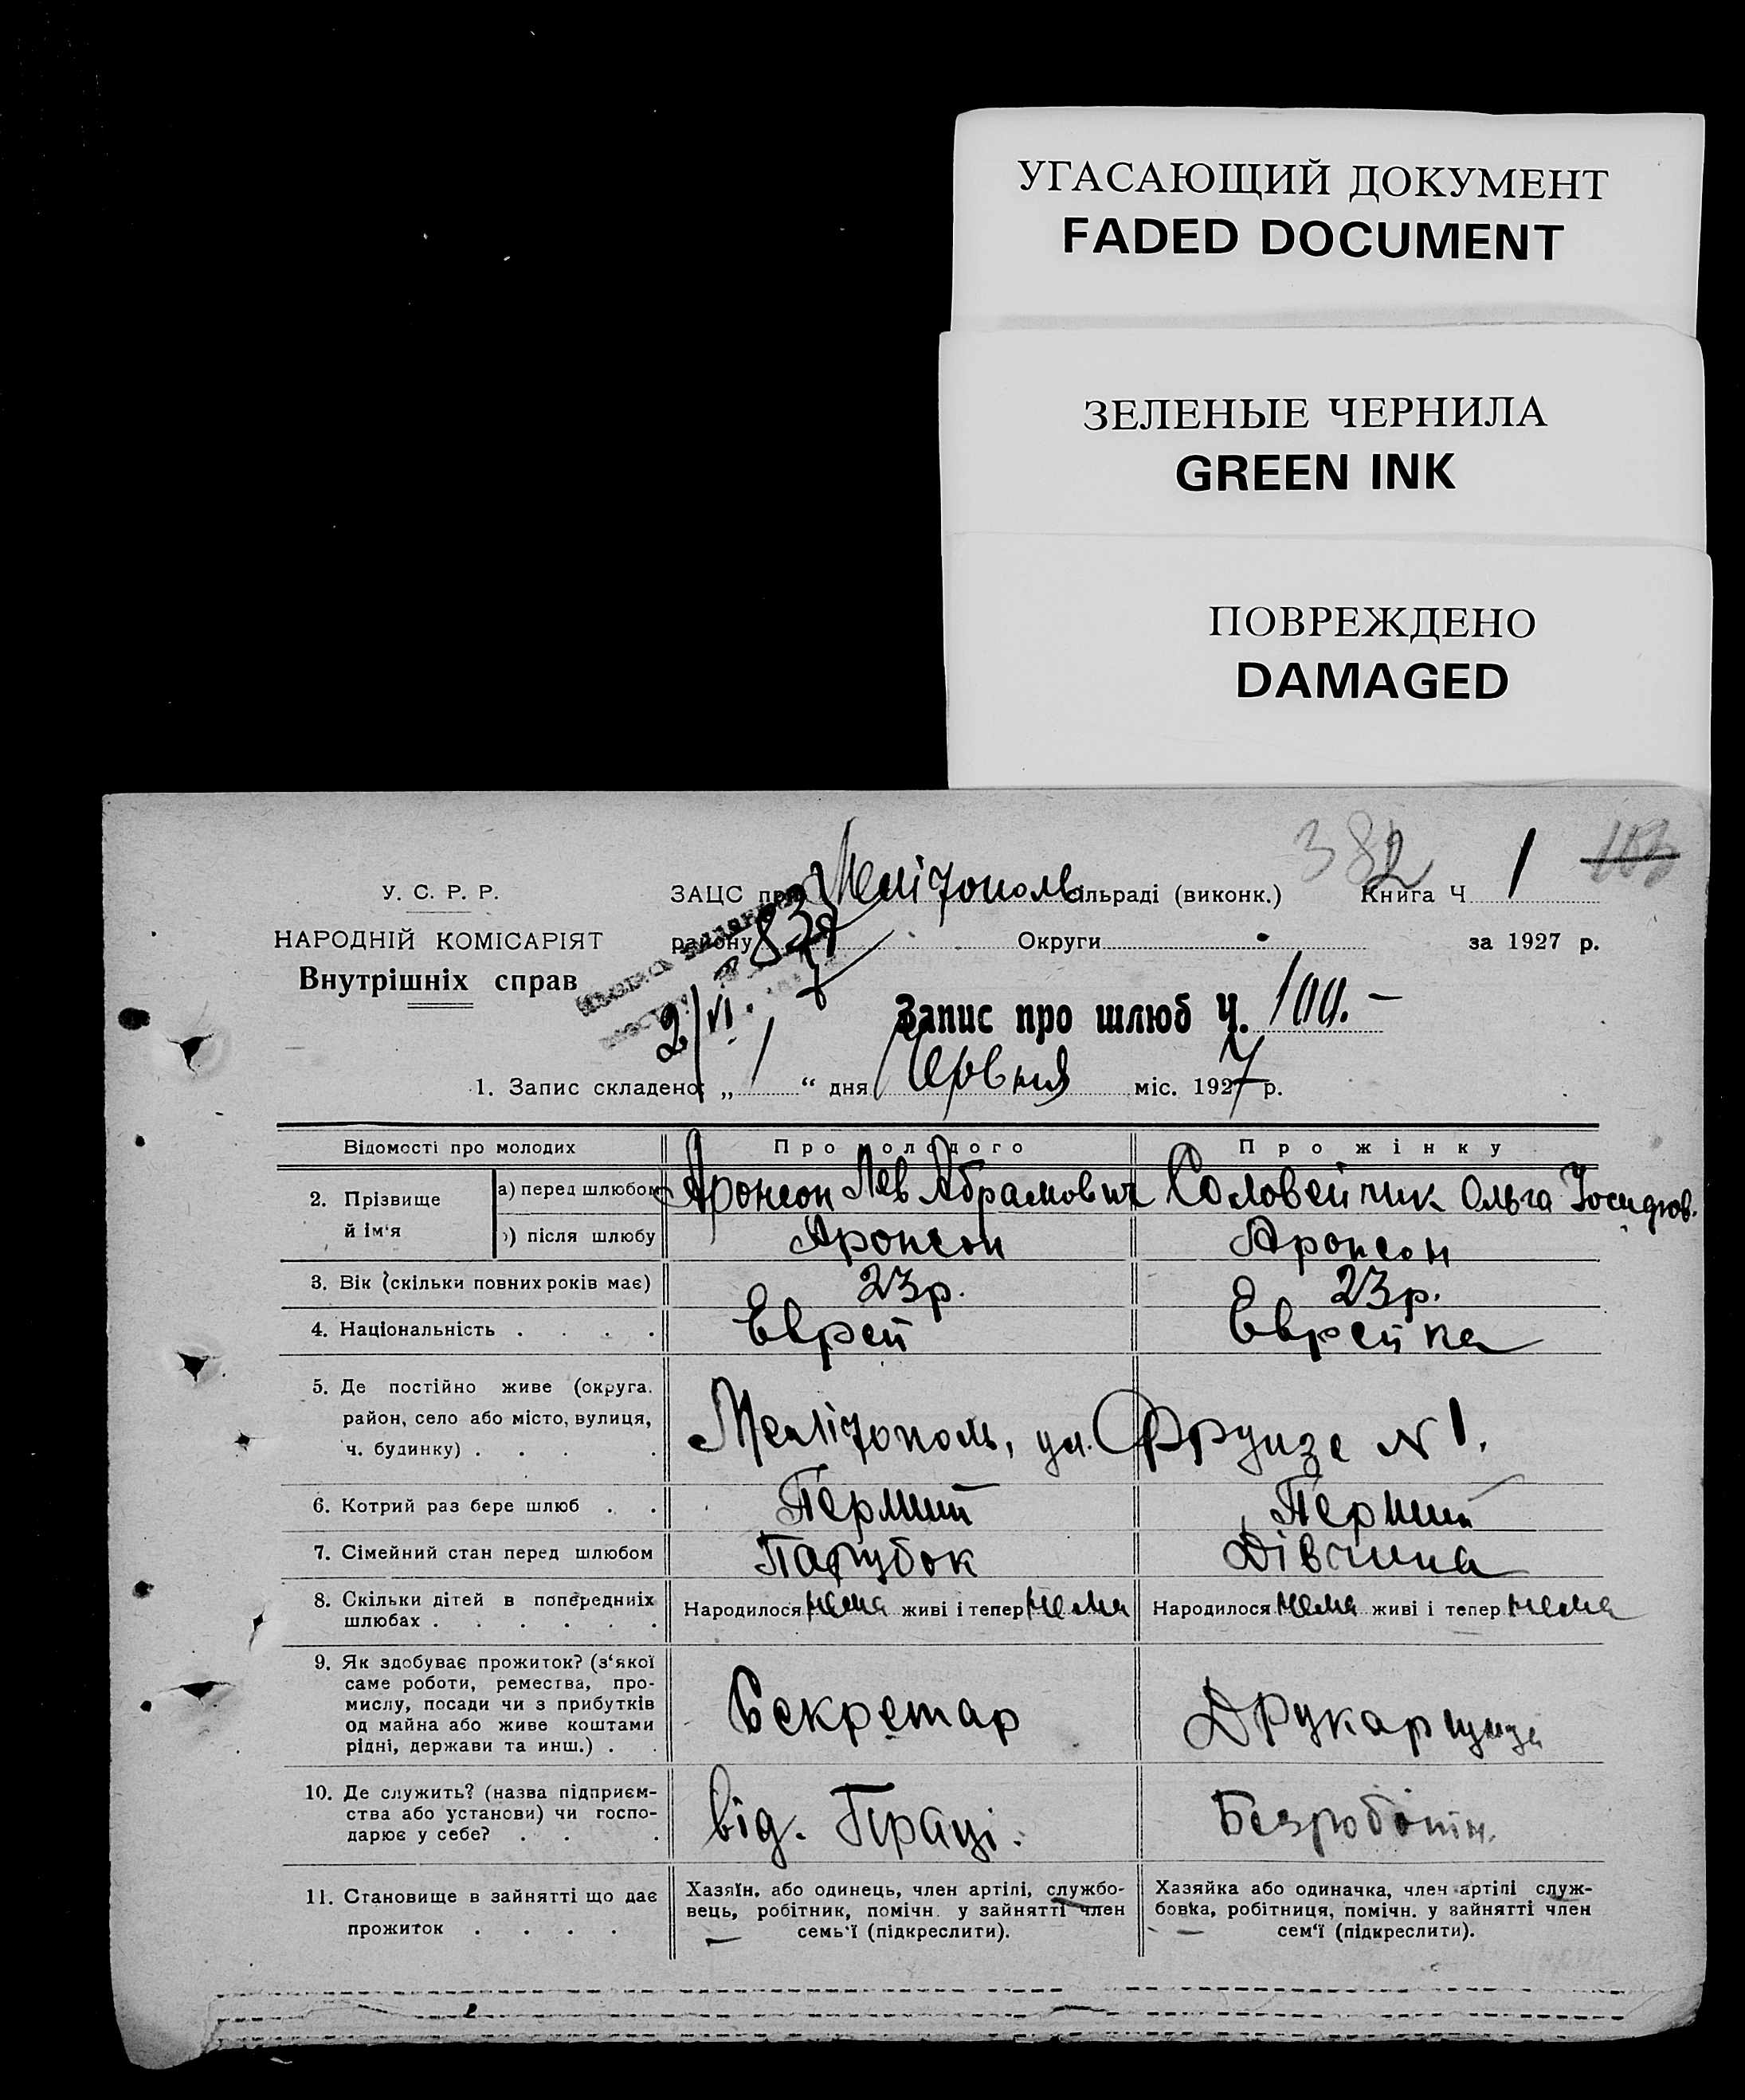 УГАСАЮЩИЙ ДОКУМЕНТ
FADED DOCUMENT
ЗЕЛЕНЫЕ ЧЕРНИЛА
GREEN INK
ПОВРЕЖДЕНО
DAMAGED
382
У. С. Р. Р.
ЗАЦС при Мелітополь сільраді (виконк.) Книга Ч 1
НАРОДНІЙ КОМІСАРІЯТ
району Округи за 1927 р.
Внутрішніх справ
2/VI.
Запис про шлюб Ч. 100.-
1. Запис складено: „ 1 “ дня Червня міс. 1927 р.
Відомості про молодих Про молодого Про жінку
2. Прізвище й ім‘я а) перед шлюбом Аронсон Лев Абрамович Соловейчик Ольга Йосифов.
) після шлюбу Аронсон Аронсон
3. Вік (скільки повних років має) 23р. 23р.
4. Національність . . . . Еврей Еврейка
5. Де постійно живе (округа.
район, село або місто, вулиця,
ч. будинку) . . . . Мелітополь, ул. Фрунзе № 1.
6. Котрий раз бере шлюб . . Перший Перший
7. Сімейний стан перед шлюбом Парубок Дівчина
8. Скільки дітей в попередніх
шлюбах . . . . . . Народилося нема живі і тепер нема Народилося нема живі і тепер нема
9. Як здобуває прожиток? (з‘якої
саме роботи, ремества, про-
мислу, посади чи з прибутків
од майна або живе коштами
рідні, держави та инш.) . . Секретар Друкарщиця
10. Де служить? (назва підприєм-
ства або установи) чи госпо-
дарює у себе? . . . від. Праці. Безробітн.
11. Становище в зайнятті що дає
прожиток . . . .
Хазяїн, або одинець, член артілі, службо-
вець, робітник, помічн. у зайнятті член
семь‘ї (підкреслити).
Хазяйка або одиначка, член артілі служ-
бовка, робітниця, помічн. у зайнятті член
сем‘ї (підкреслити).